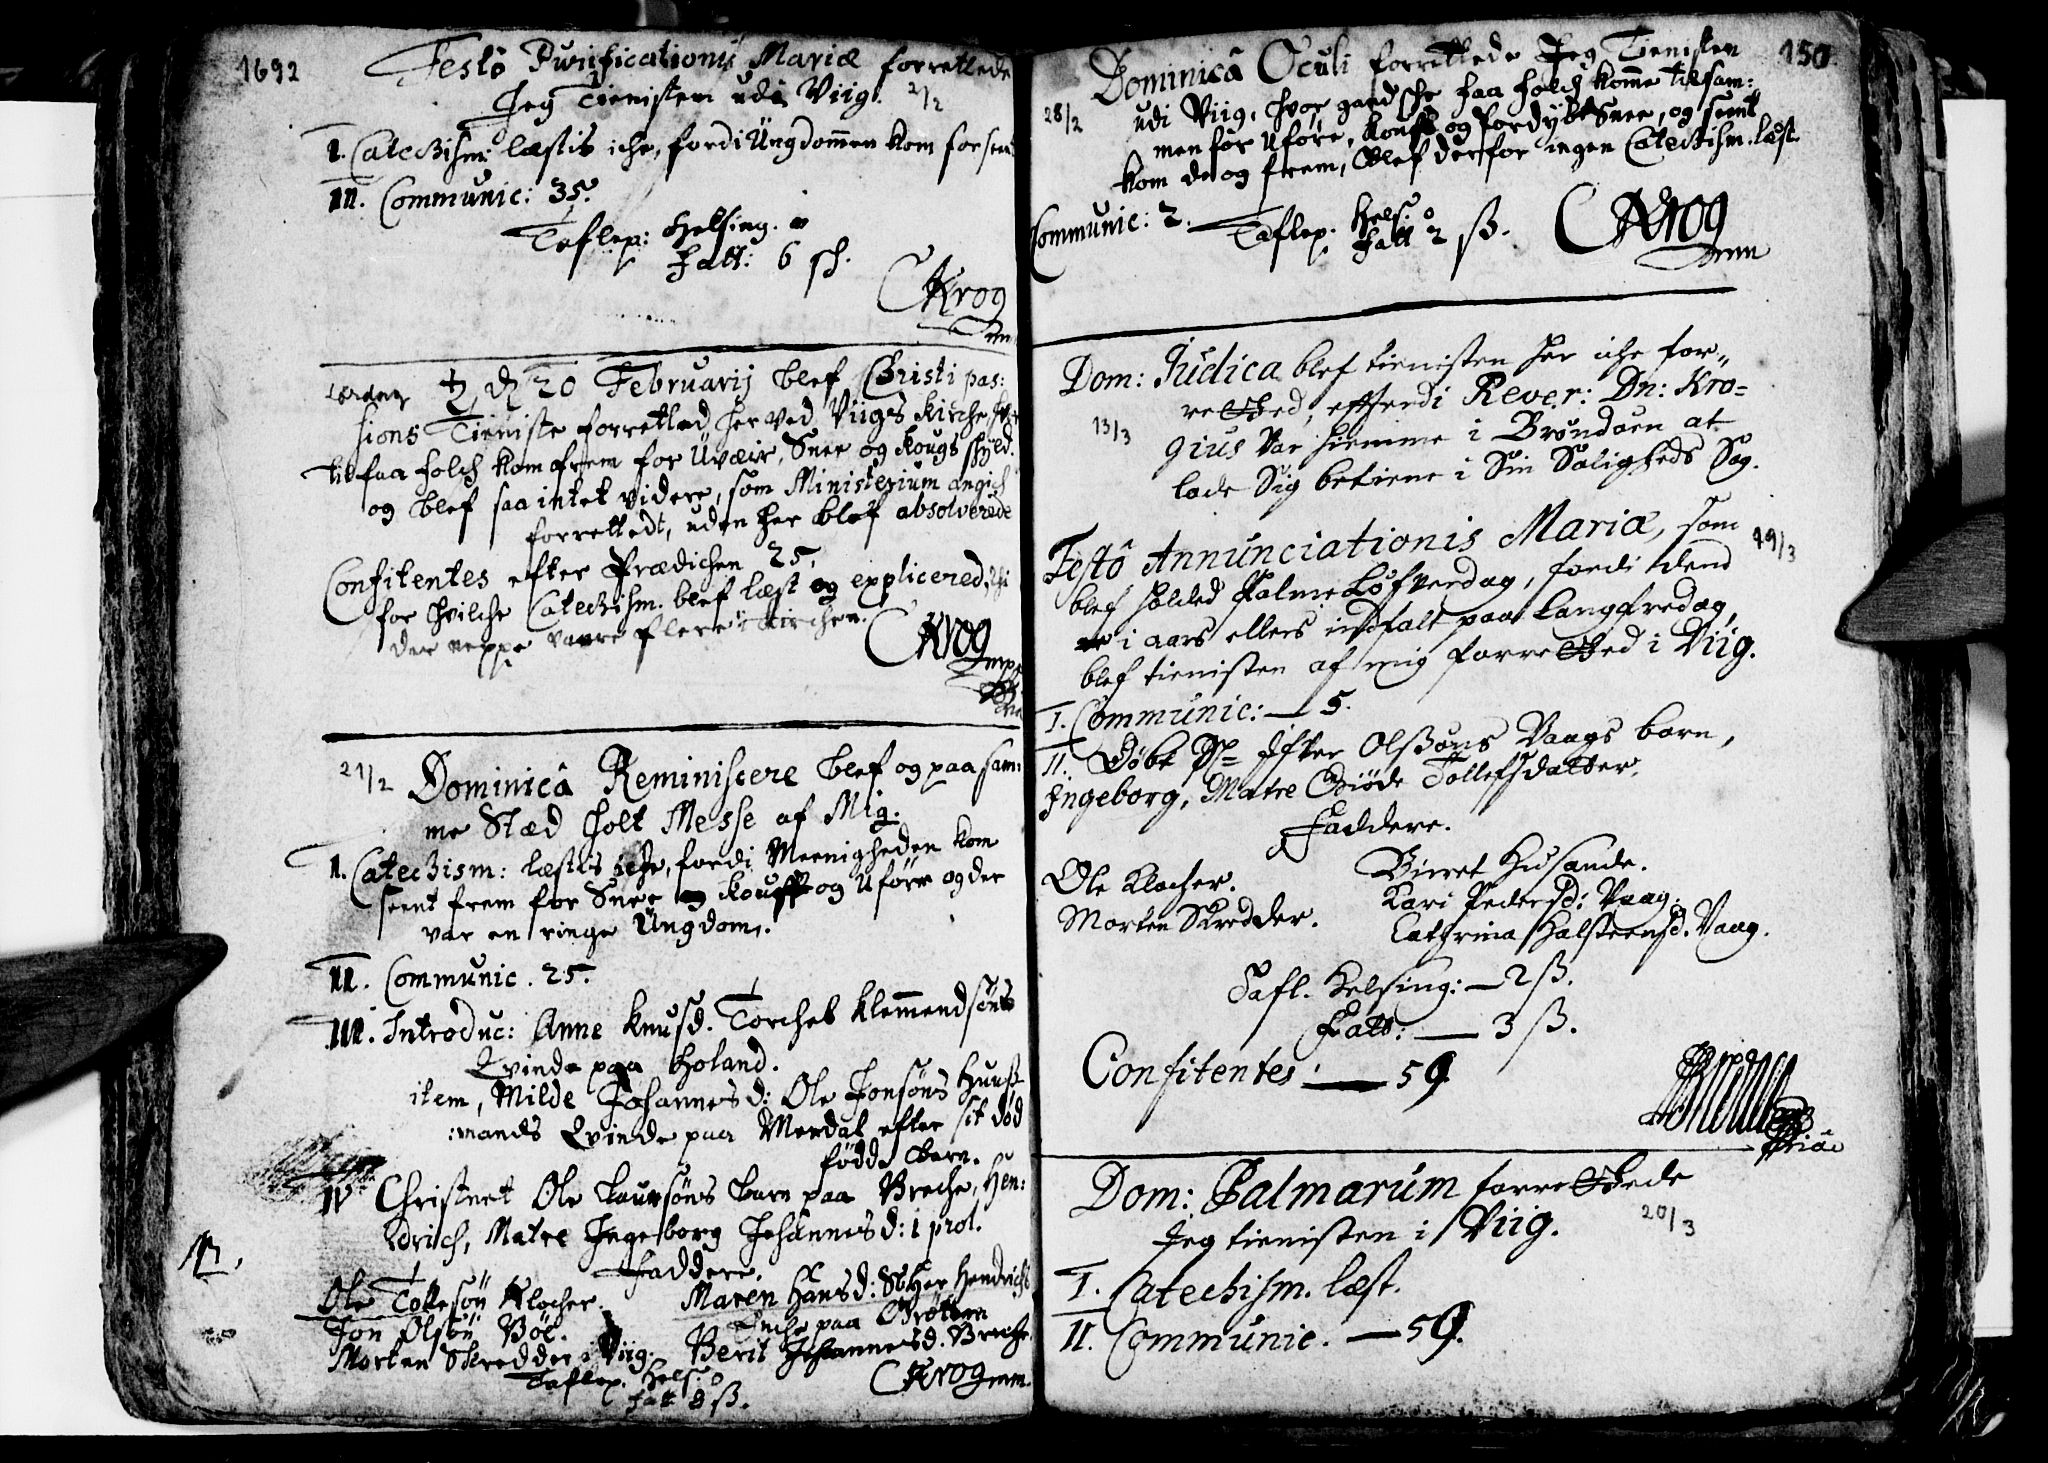 1692
Festô Purificationis Mariæ forrettede
Jeg Tienisten udi Viig. 2/2
I. Catechism: læstis iche, fordi Ungdommen kom for seent
II. Communic: 35.
Taflep: Helsing. 0
Fatt: 6 sh.
CKrog
mm
Løverdag ♄ d 20 Februarij blef Christi pas:
sions Tieniste forretted her ved Viigs Kirche,
til faa folch kom frem for Uvæir, Snee og skyld.
og blef saa intet videre, som Ministerium angich
forrettedt, uden her blef absolverede
Confitentes efter Prædichen 25,
for hvilche Catechism. blef læst og explicered,
der neppe vaare flere i Kirchen.
CKrog
mpp
21/2 Dominicâ Reminiscere blef og paa sam:
me Stæd holt Messe af Mig.
I. Catechism: læstis iche, fordi Meenigheden kom
seent frem for Snee og og Uføre og der
var en ringe Ungdom.
II. Communic. 25.
III. Introduc: Anne Knusd. Torchel Klemmendsøns
Qvinde paa Holand.
item, Milde Johannesd: Ole Jonsøns Huuß
:mands Qvinde paa Merdal efter sit død
fødde Barn.
IV Christnet Ole Laursøns Barn paa Breche, Hen:
drich, Matre Ingeborg Johannesd: 1 prol.
Faddere.
Ole Tollesøn Klocher. Maren Hansd: Hendrichs
Jon Olsøn Böl. Enche paa Grøtten
Morten Skredder i Viig. Berit Johannesd. Breche
Taflep. Hels: 0
Fatt 8 ß.
CKrog mm.
150.
Dominicâ Oculi forrettede Jeg Tienisten
28/2 udi Viig, hvor gandsche faa folch komme tilsam:
men for Uføre, og fordybt Snee, og seent
kom de og frem, Blef derfor ingen Catechism. læst.
Communic: 2. Taflep. Hels: 0
Fatt 2 ß. CKrog
mm
Dom: Judica blef tienisten her iche for„
retted, efterdi Rever: Dn: Kro-
13/3 gius Var hiemme i Brøndøen at
lade Sig betiene i Sin Saligheds Sag.
Festô Annunciationis Mariæ, som 19/3
blef holded Palme Løfverdag, fordi dend
i aars ellers indfalt paa Langfredag,
blef tienisten af mig forretted i Viig.
I. Communic: — 5.
II. Døbt Sr Ifver Olßøns Vaags barn,
Ingeborg, Matre Giøde Tollefsdatter.
Faddere.
Ole Klocher. Birret Husande.
Morten Skredder. Kari Pedersd: Vaag.
Cathrina Halsteensd. Vaag.
Tafl. Helsing: — 2 ß.
Fatt: — 3 ß.
Confitentes: — 59
Dom: Palmarum forrettede
Jeg tienisten i Viig. 20/3
I. Catechism. læst.
II. Communic. — 59.